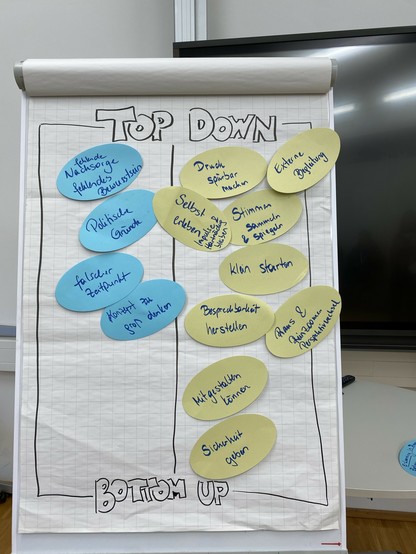 TOP DOWN
fehlende
Nachsorge
fehlendes
Bewusstsein
Politische
Gründe
falscher
Zeitpunkt
Konzept zu
groß denken
Druck
spürbar
machen
Externe
Begleitung
Selbst
erleben
Impulse &
bleiben
Stimmen
sammeln
& spiegeln
Klein starten
Besprechbarkeit
herstellen
Raus &
Reinzoomen
Perspektivwechsel
Mitgestalten
können
Sicherheit
geben
BOTTOM UP